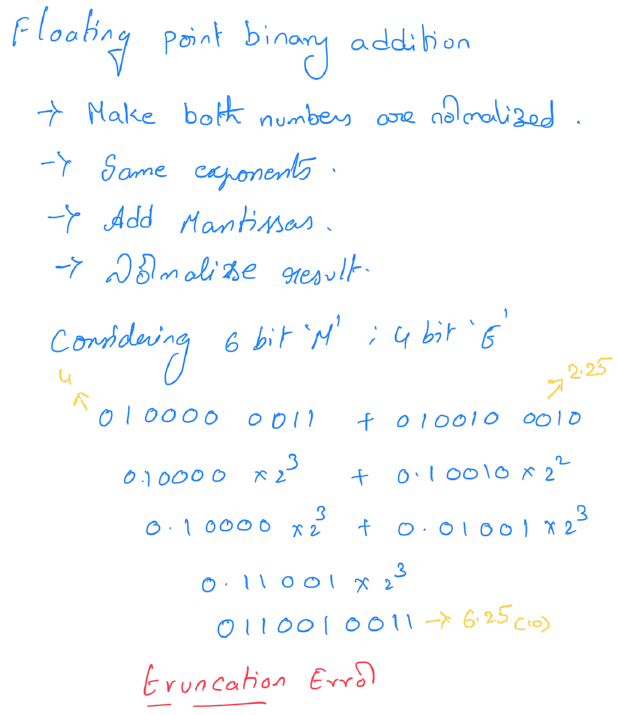 Floating point binary addition
→ Make both numbers are normalized.
→ Same exponents.
→ Add Mantissas.
→ Normalize result.
Considering 6 bit 'M' ; 4 bit 'E'
4 2.25
010000 0011 + 010010 0010
0.10000 × 2³ + 0.10010 × 2²
0.10000 × 2³ + 0.01001 × 2³
0.11001 × 2³
0110010011 → 6.25 (10)
Truncation Error